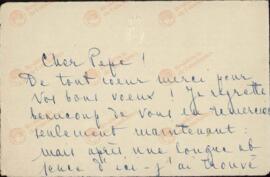 Cher Pepe!
De tout coeur merci pour
vos bons voeux! Je regrette
beaucoup de vous en remercier
seulement maintenant:
mais après une longue ab
sence d'ici - j'ai trouvé